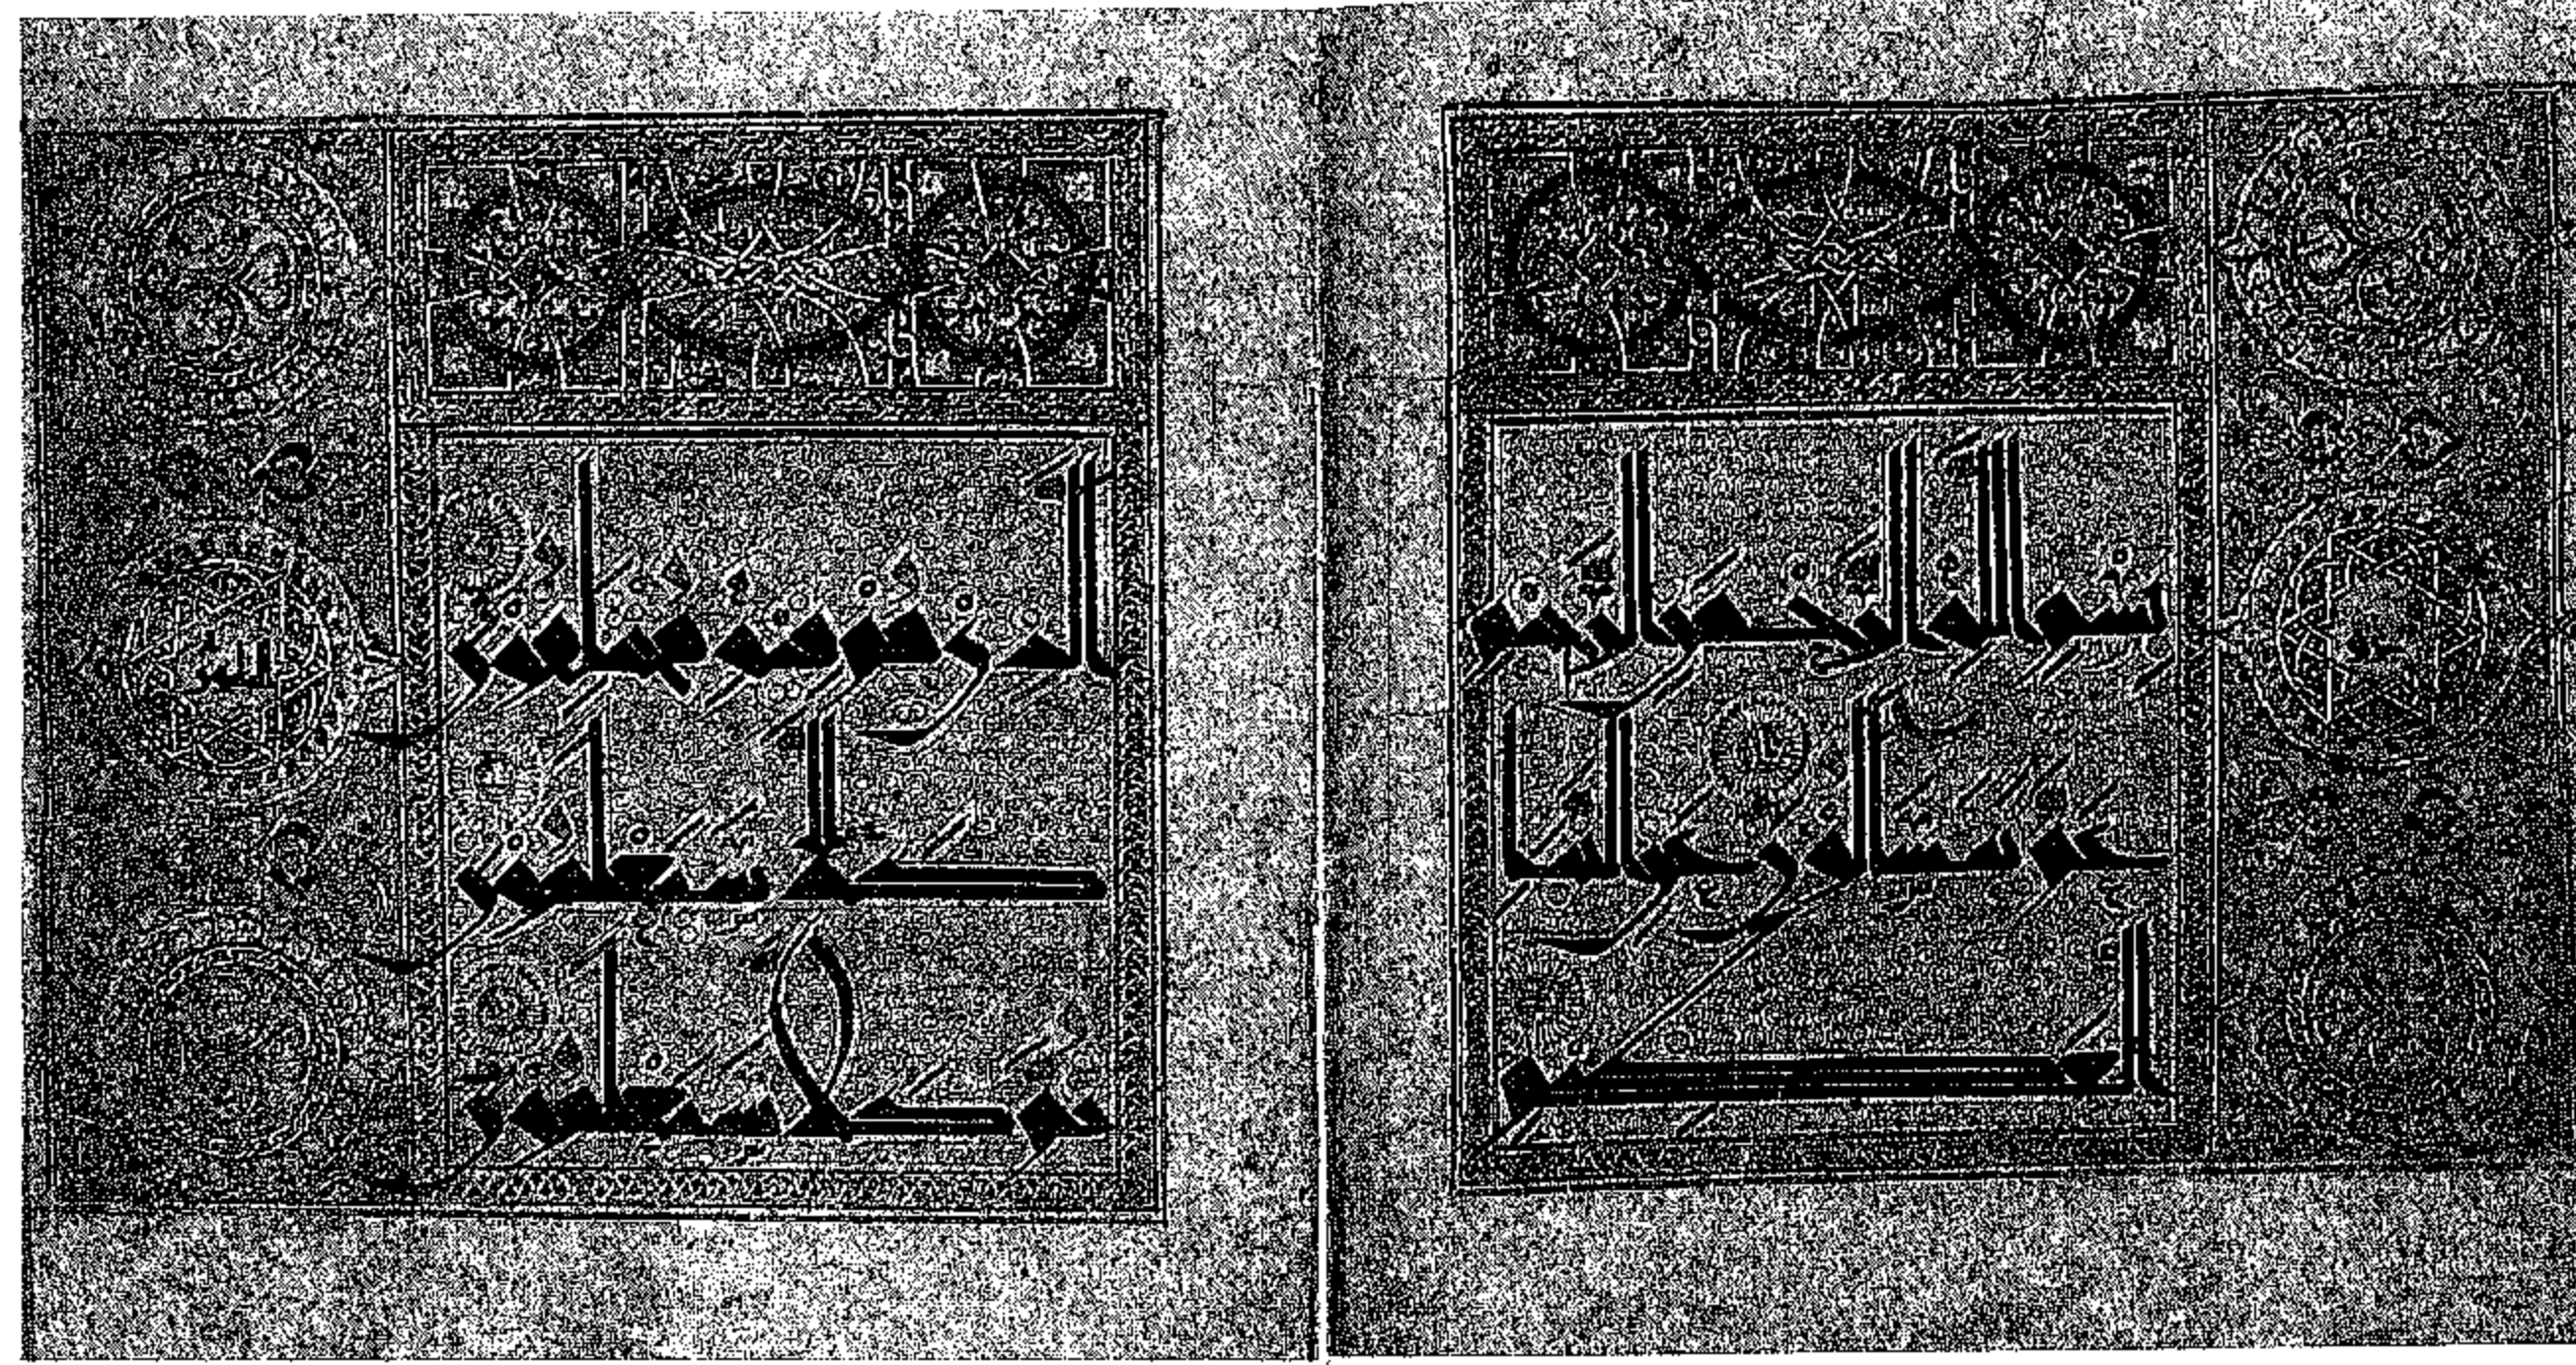 بسم الله الرحمن الرحيم
عم يتساءلون عن النبا
العظيم
الذي هم فيه مختلفون
كلا سيعلمون
ثم كلا سيعلمون
الله